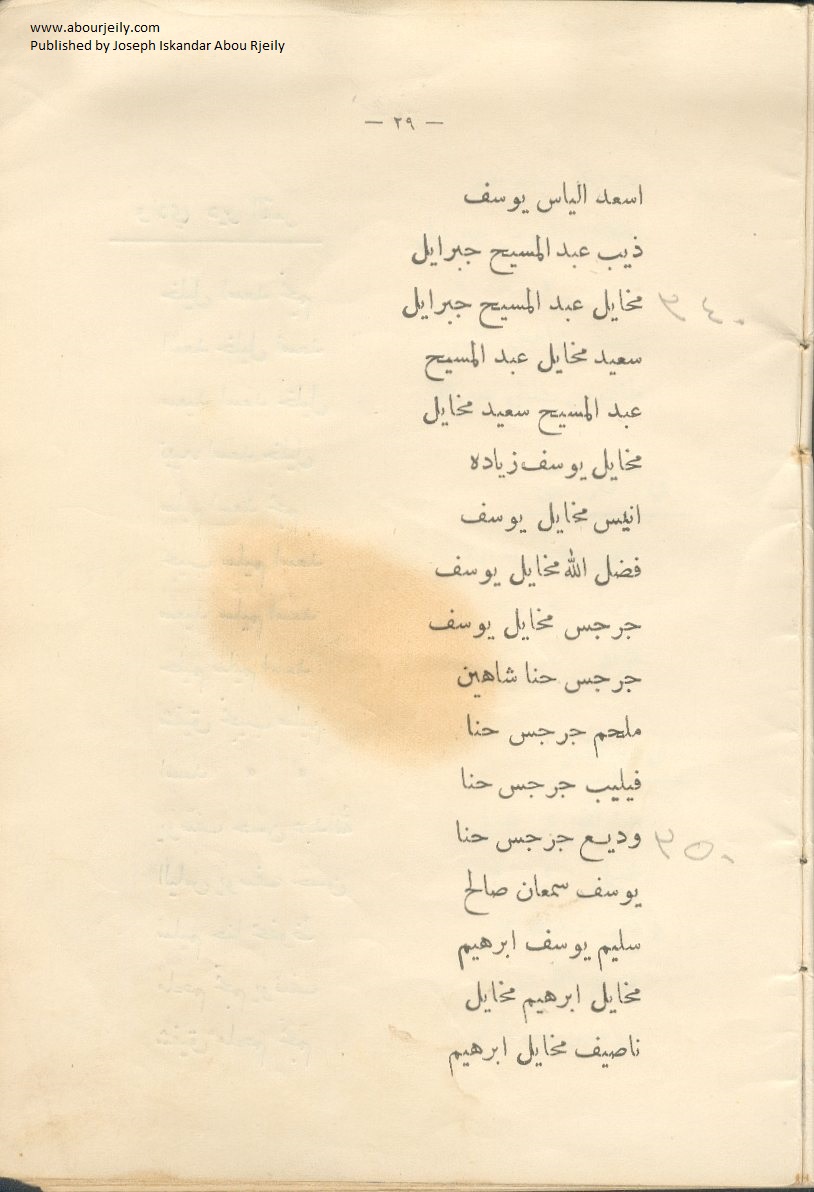 www.abourjeily.com
Published by Joseph Iskandar Abou Rjeily
— ٢٩ —
اسعد الياس يوسف
ذيب عبد المسيح جبرايل
مخايل عبد المسيح جبرايل
سعيد مخايل عبد المسيح
عبد المسيح سعيد مخايل
مخايل يوسف زياده
انيس مخايل يوسف
فضل الله مخايل يوسف
جرجس مخايل يوسف
جرجس حنا شاهين
ملحم جرجس حنا
فيليب جرجس حنا
وديع جرجس حنا
يوسف سمعان صالح
سليم يوسف ابرهيم
مخايل ابرهيم مخايل
ناصيف مخايل ابرهيم